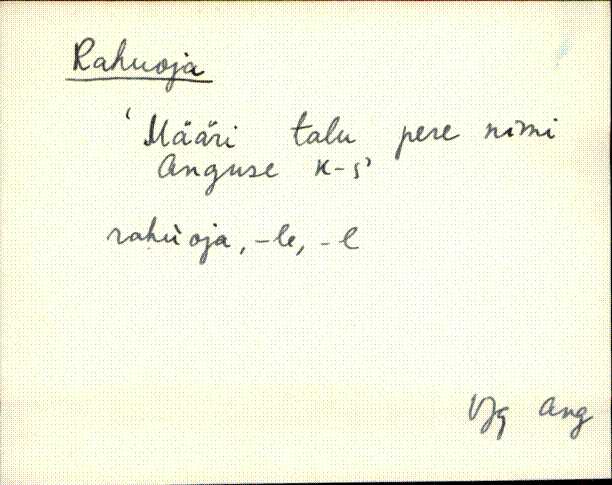 Rahuoja
'Määri talu pere nimi
Anguse k-s'
rahùoja, -le, -l
VJg Ang